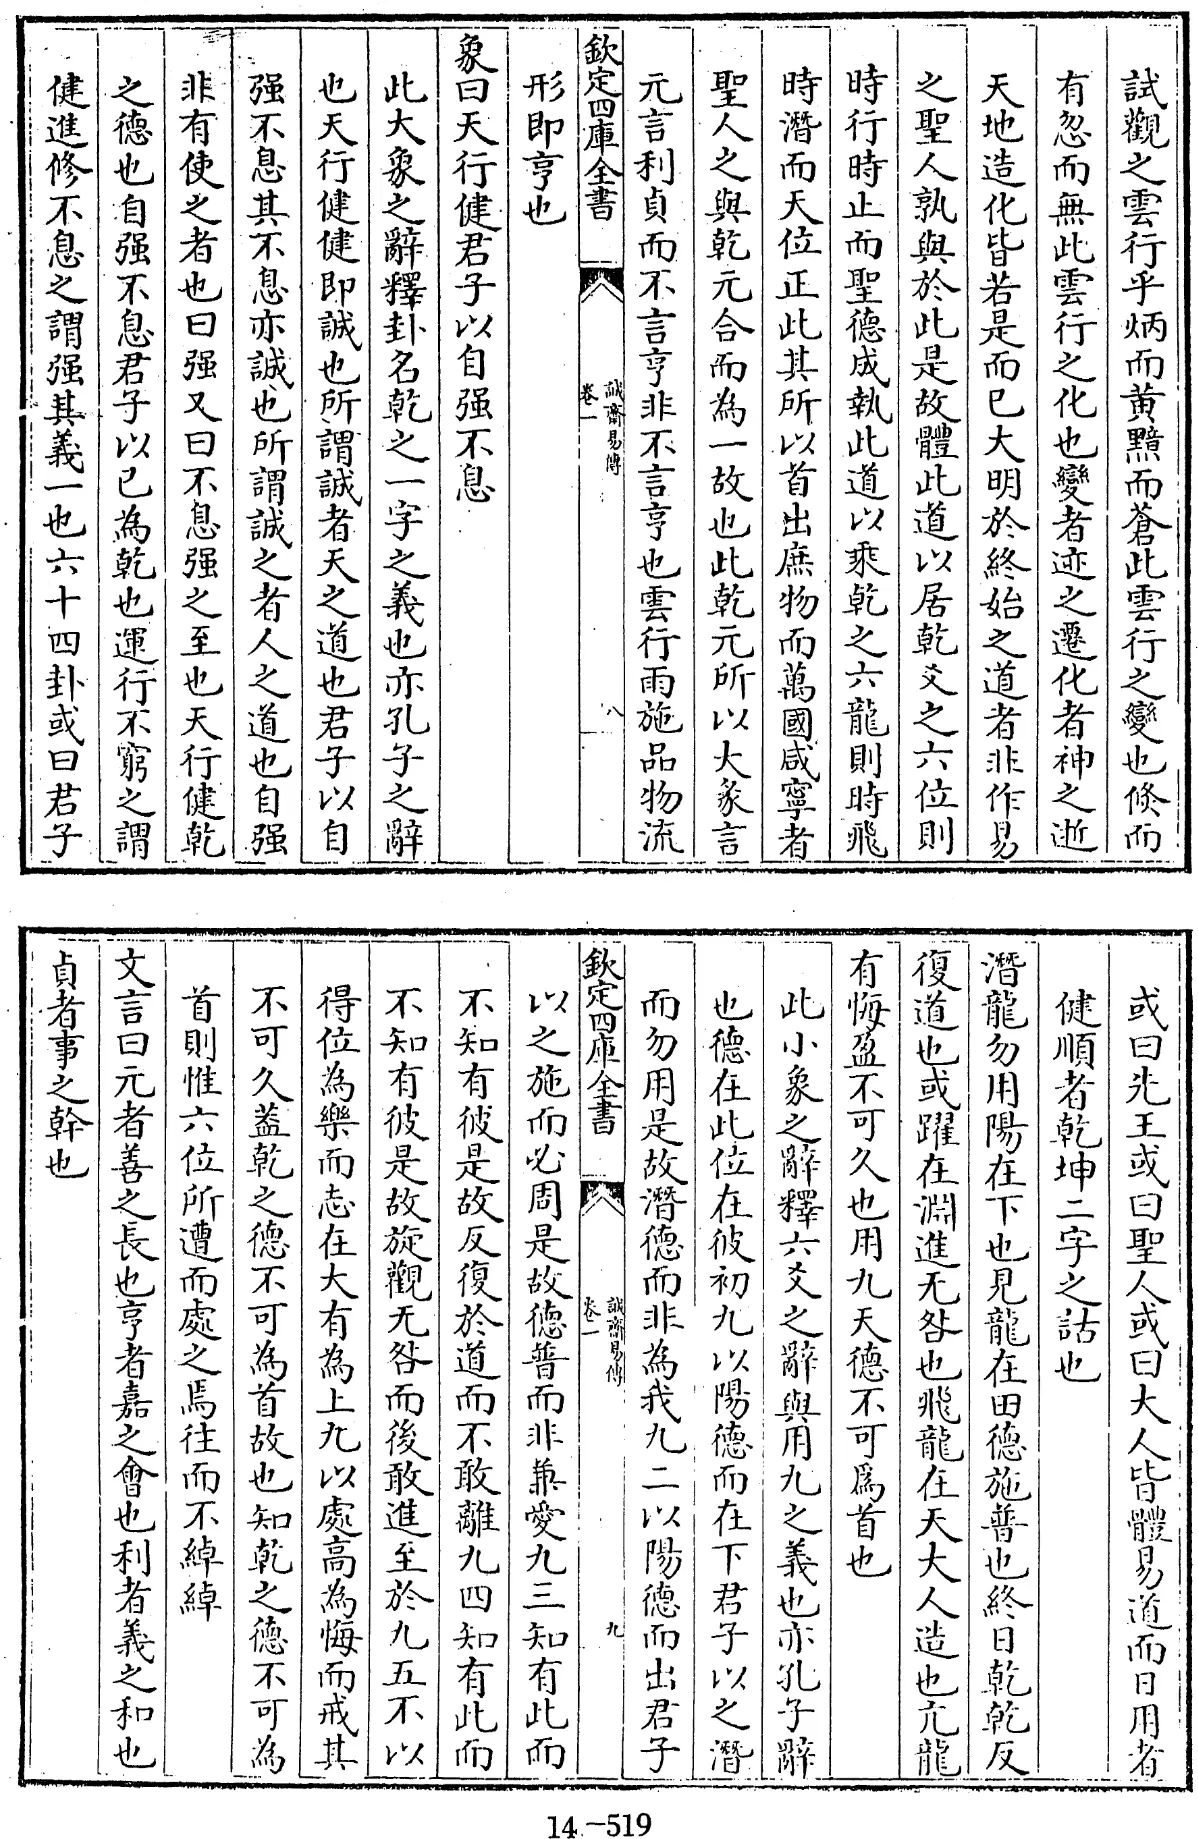 試觀之雲行乎炳而黄黯而蒼此雲行之變也倐而
有忽而無此雲行之化也變者迹之遷化者神之逝
天地造化皆若是而已大明於終始之道者非作易
之聖人孰與於此是故體此道以居乾爻之六位則
時行時止而聖德成執此道以乘乾之六龍則時飛
時潛而天位正此其所以首出庶物而萬國咸寧者
聖人之與乾元合而為一故也此乾元所以大彖言
元言利貞而不言亨非不言亨也雲行雨施品物流
欽定四庫全書
誠齋易傳
卷一
八
形即亨也
象曰天行健君子以自强不息
此大象之辭釋卦名乾之一字之義也亦孔子之辭
也天行健健即誠也所謂誠者天之道也君子以自
强不息其不息亦誠也所謂誠之者人之道也自强
非有使之者也曰强又曰不息强之至也天行健乾
之德也自强不息君子以已為乾也運行不窮之謂
健進修不息之謂强其義一也六十四卦或曰君子
或曰先王或曰聖人或曰大人皆體易道而日用者
健順者乾坤二字之詁也
潛龍勿用陽在下也見龍在田德施普也終日乾乾反
復道也或躍在淵進无咎也飛龍在天大人造也亢龍
有悔盈不可久也用九天德不可爲首也
此小象之辭釋六爻之辭與用九之義也亦孔子辭
也德在此位在彼初九以陽德而在下君子以之潛
而勿用是故潛德而非為我九二以陽德而出君子
欽定四庫全書
誠齋易傳
卷一
九
以之施而必周是故德普而非兼愛九三知有此而
不知有彼是故反復於道而不敢離九四知有此而
不知有彼是故旋觀无咎而後敢進至於九五不以
得位為樂而志在大有為上九以處高為悔而戒其
不可久葢乾之德不可為首故也知乾之德不可為
首則惟六位所遭而處之焉往而不綽綽
文言曰元者善之長也亨者嘉之會也利者義之和也
貞者事之幹也
14-519